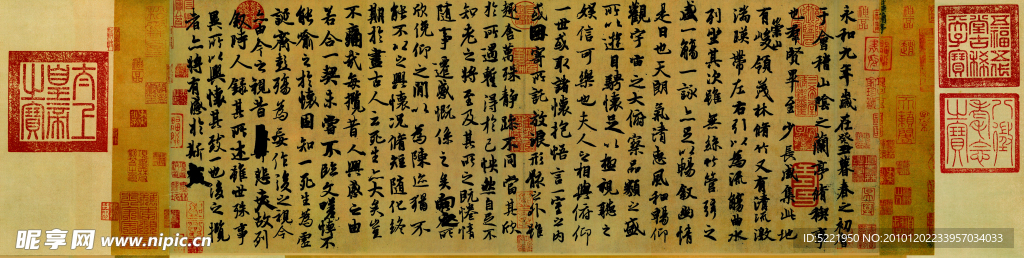 永和九年歲在癸丑暮春之初
于會稽山陰之蘭亭脩稧事
也群賢畢至少長咸集此地
有崇山峻領茂林脩竹又有清流激
湍暎帶左右引以為流觴曲水
列坐其次雖無絲竹管弦之
盛一觴一詠亦足以暢叙幽情
是日也天朗氣清惠風和暢仰
觀宇宙之大俯察品類之盛
所以遊目騁懷足以極視聽之
娛信可樂也夫人之相與俯仰
一世或取諸懷抱悟言一室之內
或因寄所託放浪形骸之外雖
趣舍萬殊靜躁不同當其欣
於所遇暫得於己怏然自足不
知老之將至及其所之既惓情
隨事遷感慨係之矣向之所
欣俛仰之閒以為陳迹猶不
能不以之興懷況脩短隨化終
期於盡古人云死生亦大矣豈
不痛哉每攬昔人興感之由
若合一契未嘗不臨文嗟悼不
能喻之於懷固知一死生為虛
誕齊彭殤為妄作後之視今
亦由今之視昔悲夫故列
敘時人錄其所述雖世殊事
異所以興懷其致一也後之攬
者亦將有感於斯文
五福五代堂古稀天子寶
八徵耄念之寶
太上皇帝之寶
昵享网 www.nipic.cn
ID:5221950 NO:20101202233957034033